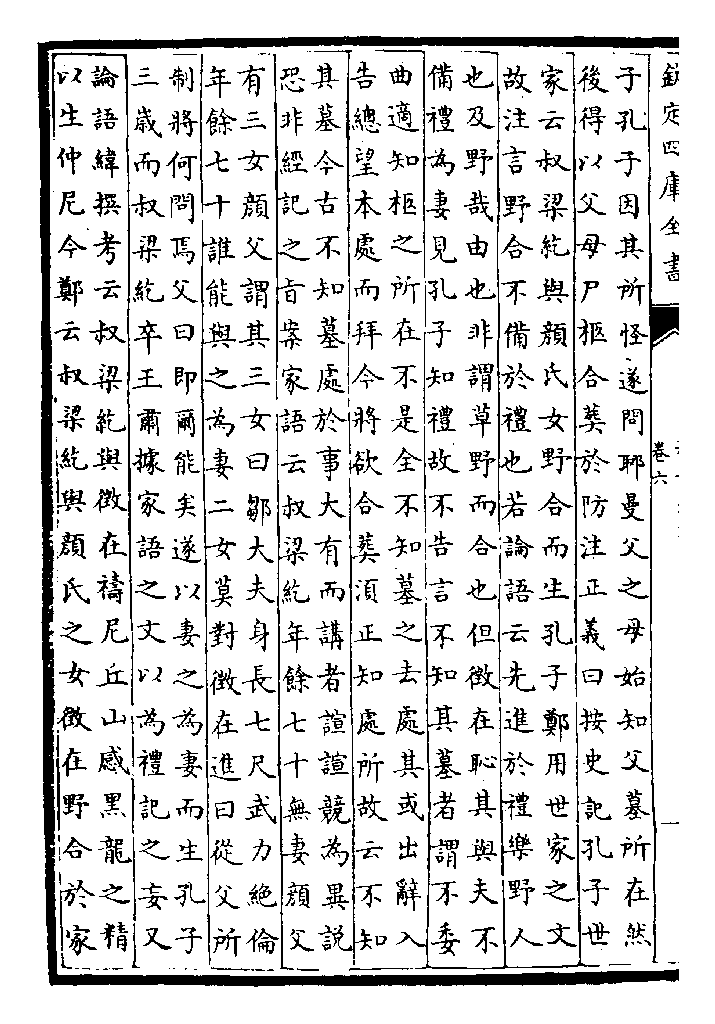 欽定四庫全書
卷六
子孔子因其所怪遂問耶曼父之母始知父墓所在然
後得以父母尸柩合葬於防注正義曰按史記孔子世
家云叔梁紇與顔氏女野合而生孔子鄭用世家之文
故注言野合不備於禮也若論語云先進於禮樂野人
也及野哉由也非謂草野而合也但徵在恥其與夫不
備禮為妻見孔子知禮故不告言不知其墓者謂不委
曲適知柩之所在不是全不知墓之去處其或出辭入
告總望本處而拜今將欲合葬須正知處所故云不知
其墓今古不知墓處於事大有而講者諠諠競為異說
恐非經記之旨案家語云叔梁紇年餘七十無妻顔父
有三女顔父謂其三女曰鄒大夫身長七尺武力絶倫
年餘七十誰能與之為妻二女莫對徵在進曰從父所
制將何問焉父曰即爾能矣遂以妻之為妻而生孔子
三歲而叔梁紇卒王肅據家語之文以為禮記之妄又
論語緯撰考云叔梁紇與徵在禱尼丘山感黑龍之精
以生仲尼今鄭云叔梁紇與顔氏之女徵在野合於家